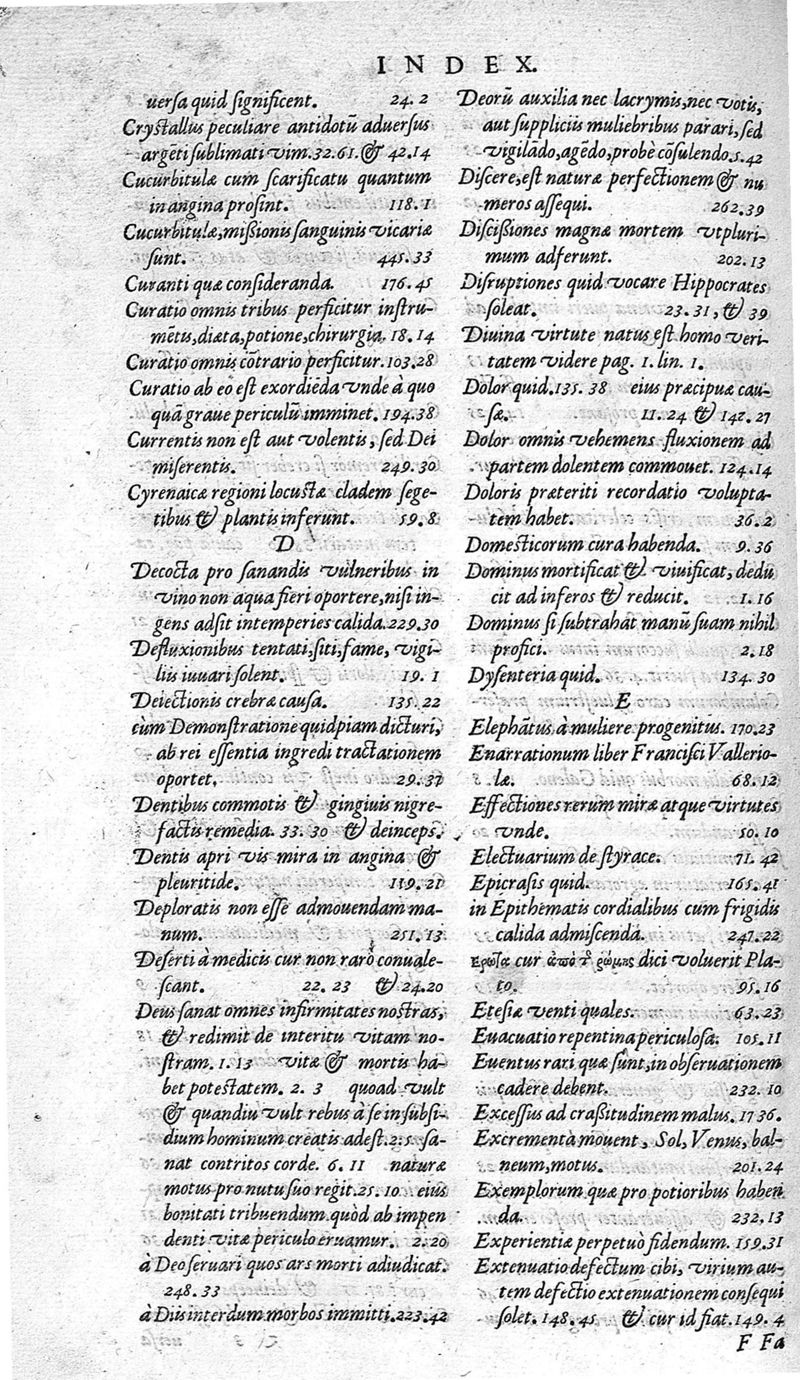 INDEX.
uersa quid significent. 24.2
Crystallus peculiare antidotũ aduersus
argẽti sublimati vim. 32.61. & 42.14
Cucurbitulæ cum scarificatu quantum
in angina prosint. 118.1
Cucurbitulæ, missionis sanguinis vicariæ
sunt. 445.33
Curanti quæ consideranda. 176.45
Curatio omnis tribus perficitur instru-
mẽtis, diæta, potione, chirurgia. 18.14
Curatio omnis cõtrario perficitur. 103.28
Curatio ab eo est exordiẽda vnde à quo
quã graue periculũ imminet. 194.38
Currentis non est aut volentis, sed Dei
miserentis. 249.30
Cyrenaicæ regioni locustæ cladem sege-
tibus & plantis inferunt. 59.8
D
Decocta pro sanandis vulneribus in
vino non aqua fieri oportere, nisi in-
gens adsit intemperies calida. 229.30
Defluxionibus tentati, siti, fame, vigi-
liis iuuari solent. 19.1
Deiectionis crebræ causa. 135.22
cùm Demonstratione quidpiam dicturi,
ab rei essentia ingredi tractationem
oportet. 29.37
Dentibus commotis & gingiuis nigre-
factis remedia. 33.30 & deinceps.
Dentis apri vis mira in angina &
pleuritide. 119.21
Deploratis non esse admouendam ma-
num. 251.13
Deserti à medicis cur non rarò conuale-
scant. 22.23 & 24.20
Deus sanat omnes infirmitates nostras,
& redimit de interitu vitam no-
stram. 1.13 vitæ & mortis ha-
bet potestatem. 2.3 quoad vult
& quandiu vult rebus à se in subsi-
dium hominum creatis adest. 2.5 sa-
nat contritos corde. 6.11 naturæ
motus pro nutu suo regit. 25.10 eius
bonitati tribuendum quòd ab impen
denti vitæ periculo eruamur. 2.20
à Deo seruari quos ars morti adiudicat.
248.33
à Diis interdum morbos immitti. 223.42
Deorũ auxilia nec lacrymis, nec votis,
aut suppliciis muliebribus parari, sed
vigilãdo, agẽdo, probè cõsulendo. 5.42
Discere, est naturæ perfectionem & nu
meros assequi. 262.39
Discissiones magnæ mortem vtpluri-
mum adferunt. 202.13
Disruptiones quid vocare Hippocrates
soleat. 23.31, & 39
Diuina virtute natus est homo veri-
tatem videre pag. 1. lin. 1.
Dolor quid. 135.38 eius præcipuæ cau-
sæ. 11.24 & 142.27
Dolor omnis vehemens fluxionem ad
partem dolentem commouet. 124.14
Doloris præteriti recordatio volupta-
tem habet. 36.2
Domesticorum cura habenda. 9.36
Dominus mortificat & viuificat, dedu
cit ad inferos & reducit. 1.16
Dominus si subtrahat manũ suam nihil
profici. 2.18
Dysenteria quid. 134.30
E
Elephãtus à muliere progenitus. 170.23
Enarrationum liber Francisci Vallerio-
læ. 68.12
Effectiones rerum miræ atque virtutes
vnde. 50.10
Electuarium de styrace. 71.42
Epicrasis quid. 165.41
in Epithematis cordialibus cum frigidis
calida admiscenda. 247.22
cur ἀπὸ τ ῥώμης dici voluerit Pla-
to. 95.16
Etesiæ venti quales. 63.23
Euacuatio repentina periculosa. 105.11
Euentus rari quæ sunt, in obseruationem
cadere debent. 232.10
Excessus ad crassitudinem malus. 17 36.
Excrementa mouent, Sol, Venus, bal-
neum, motus. 201.24
Exemplorum quæ pro potioribus haben
da. 232,13
Experientiæ perpetuò fidendum. 159.31
Extenuatio defectum cibi, virium au-
tem defectio extenuationem consequi
solet. 148.45 & cur id fiat. 149.4
F Fa